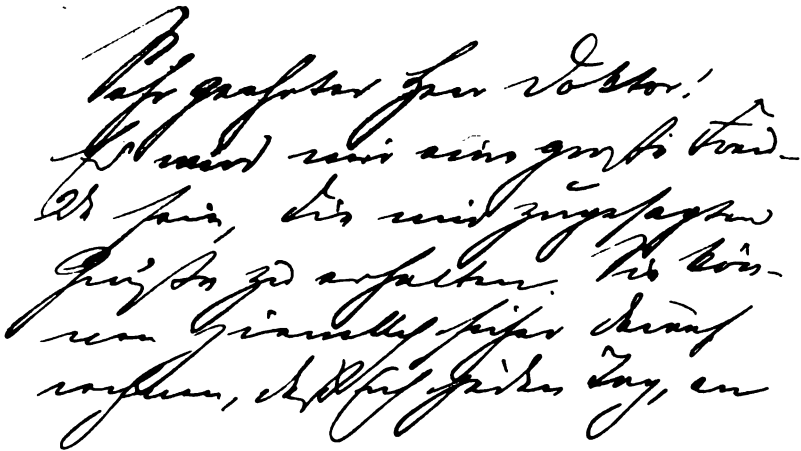 Sehr geehrter Herr Doktor!
Es wird mir eine große Freu-
de sein, die mir zugesagten
zu erhalten. Sie kön-
nen ziemlich sicher darauf
rechnen, daß ich jeden Tag, an